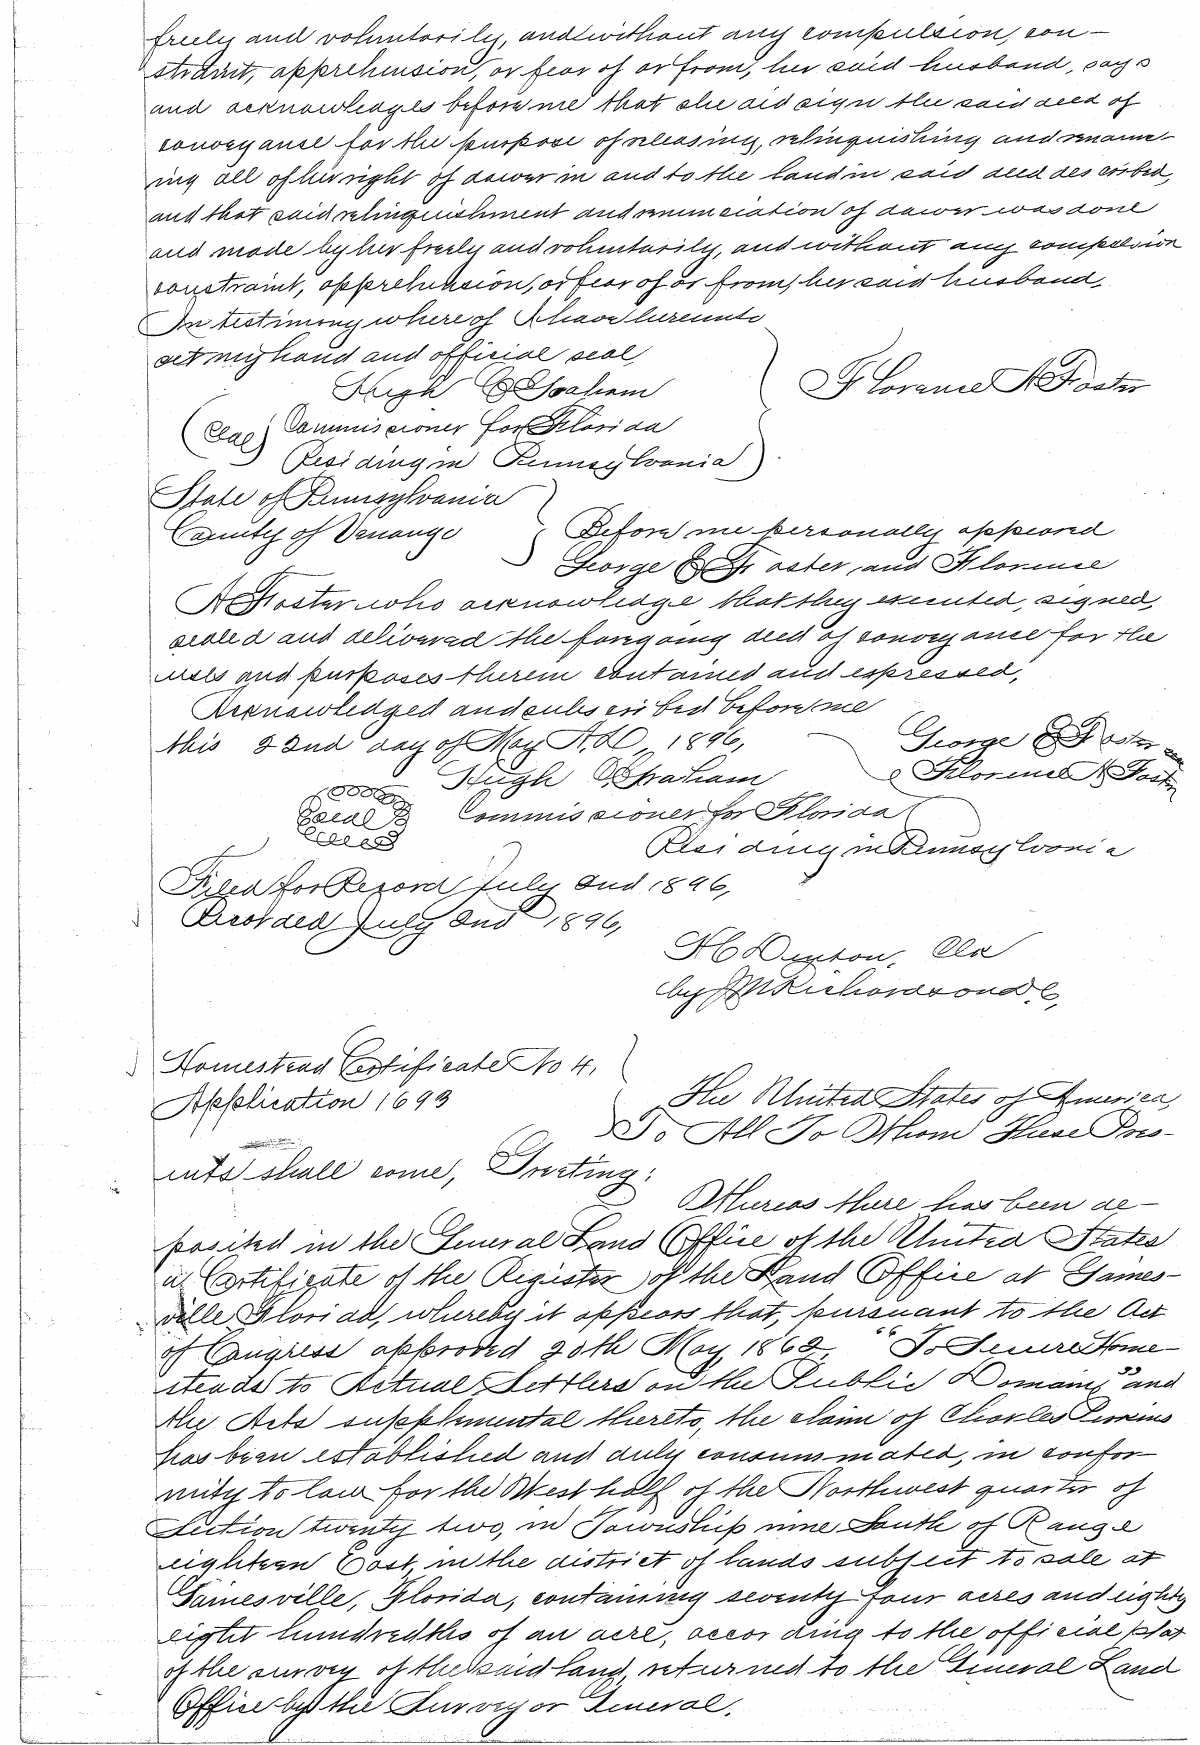 freely and voluntarily, and without any compulsion, con-
straint, apprehension, or fear of or from, her said husband, says
and acknowledges before me that she did sign the said deed of
conveyance for the purpose of releasing, relinquishing and renounc-
ing all of her right of dower in and to the land in said deed described,
and that said relinquishment and renunciation of dower was done
and made by her freely and voluntarily, and without any compulsion
constraint, apprehension, or fear of or from, her said husband,
In testimony where of I have hereunto
set my hand and official seal,
Hugh C Graham
Florence A Foster
(Seal) Commissioner for Florida
Residing in Pennsylvania
State of Pennsylvania
County of Venango Before me personally appeared
George E Foster and Florence
A Foster who acknowledge that they executed, signed,
sealed and delivered the foregoing deed of conveyance for the
uses and purposes therein contained and expressed,
Acknowledged and subscribed before me
this 22nd day of May A.D. 1896,
George E Foster
Hugh C Graham
Florence A Foster
Seal Commissioner for Florida
Residing in Pennsylvania
Filed for Record July 2nd 1896,
Recorded July 2nd 1896,
H C Denton, Clk
by J M Richardson D C,
Homestead Certificate No 4,
Application 1693
The United States of America,
To All To Whom These Pres-
ents shall come, Greeting:
Whereas there has been de-
posited in the General Land Office of the United States
a Certificate of the Register of the Land Office at Gaines-
ville Floriad, whereby it appears that, pursuant to the Act
of Congress approved 20th May 1862, "To Secure Home-
steads to Actual Settlers on the Public Domain," and
the Acts supplemental thereto, the claim of Charles Perkins
has been established and duly consummated, in confor
mity to law for the West half of the Northwest quarter of
Section twenty two, in Township nine South of Range
eighteen East, in the district of lands subject to sale at
Gainesville, Florida, containing seventy four acres and eighty
eight hundredths of an acre, according to the official plat
of the survey of the said land, returned to the General Land
Office by the Surveyor General.